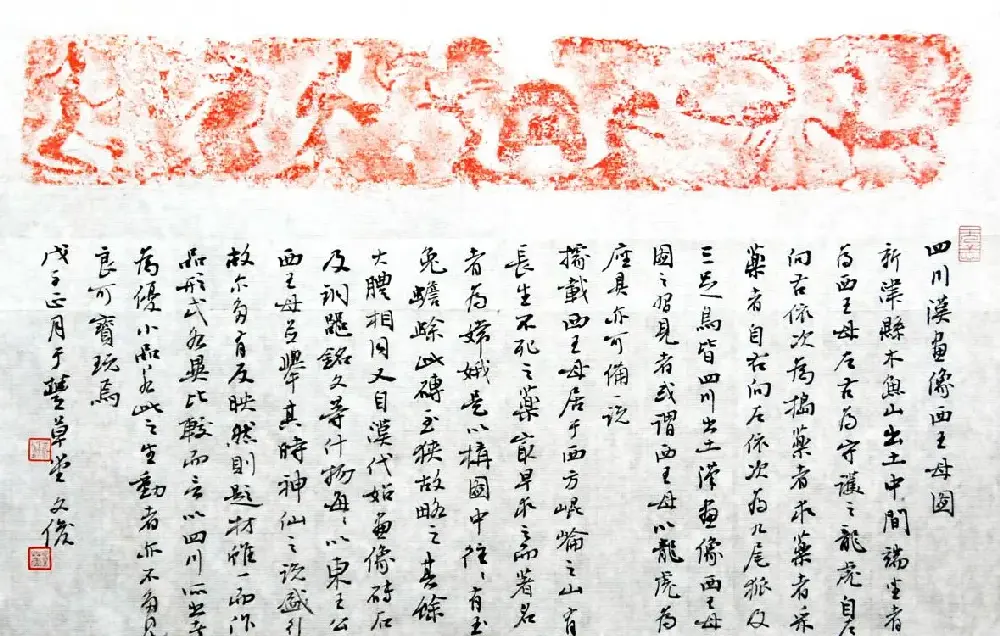 四川漢畫像西王母圖
新津縣木魚山出土中間端坐者
為西王母左右為守護之龍虎自左
向右依次為搗藥者求藥者采
藥者自右向左依次為九尾狐及
三足烏皆四川出土漢畫像西王母
圖之習見者或謂西王母以龍虎為
座具亦可備一說
據載西王母居于西方崐崘之山有
長生不死之藥最早求之而著名
者為嫦娥是以構圖中往往有玉
兔蟾蜍此磚至狹故略之其餘
大體相同又自漢代始畫像磚石
及銅鏡銘文等什物每每以東王公
西王母並舉其時神仙之說盛行
故亦多有反映然則題材雖一而作
品形式各異比較而言以四川所出者
為優小品如此之生動者亦不多見
良可寶玩焉
戊子正月于豐草堂文俊